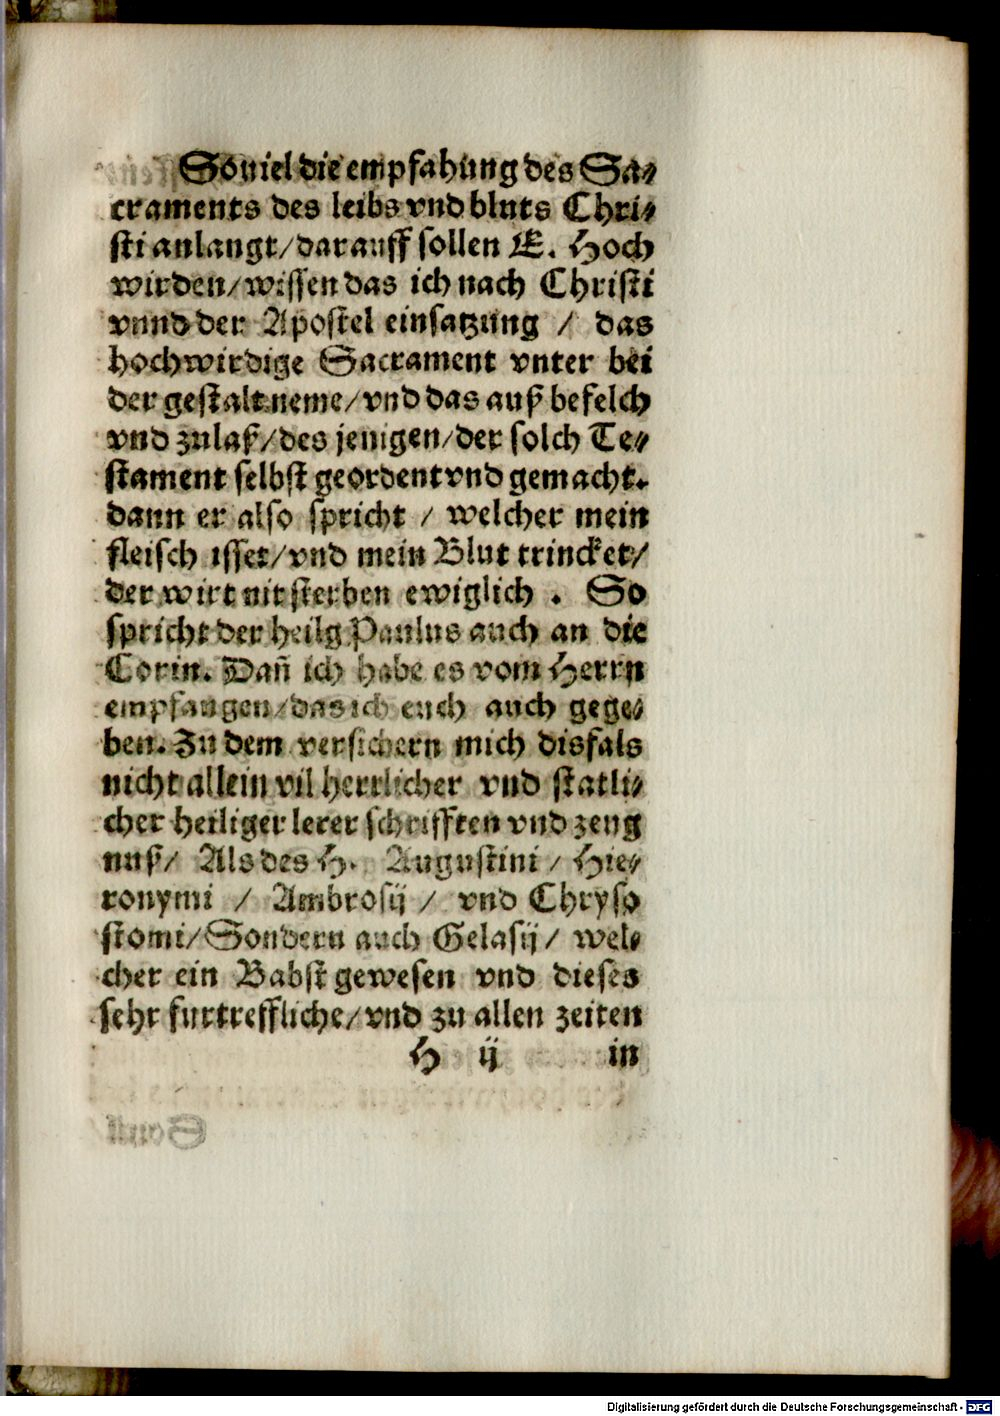 Souiel die empfahung des Sa⸗
craments des leibs vnd bluts Chri⸗
sti anlangt/darauff sollen E. Hoch
wirden/wissen das ich nach Christi
vnnd der Apostel einsatzung / das
hochwirdige Sacrament vnter bei
der gestalt neme/vnd das auß befelch
vnd zulaß/des jenigen/der solch Te⸗
stament selbst geordent vnd gemacht.
dann er also spricht / welcher mein
fleisch isset/vnd mein Blut trincket/
der wirt nit sterben ewiglich . So
spricht der heilg Paulus auch an die
Corin. Dañ ich habe es vom Herrn
empfangen/das ich euch auch gege⸗
ben. Zu dem versichern mich disfals
nicht allein vil herrlicher vnd statli⸗
cher heiliger lerer schrifften vnd zeug
nuß/ Als des H. Augustini / Hie⸗
ronymi / Ambrosij / vnd Chryso
stomi/Sondern auch Gelasij/ wel⸗
cher ein Babst gewesen vnd dieses
sehr furtreffliche/vnd zu allen zeiten
H ij in
Digitalisierung gefördert durch die Deutsche Forschungsgemeinschaft - DFG